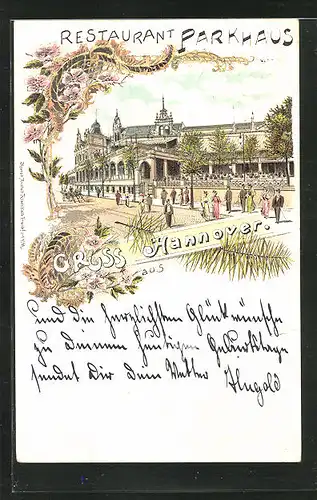 RESTAURANT PARKHAUS
GRUSS
aus
Hannover.
und die herzlichsten Glückwünsche
zu Deinem heutigen Geburtstage
sendet Dir Dein Vetter